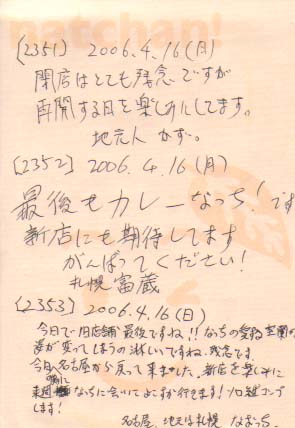 natchan!
[2351] 2006.4.16(日)
閉店はとても残念ですが
再開する日を楽しみにしてます。
地元人 かず。
[2352] 2006.4.16(月)
最後もカレーなっち!です
新店にも期待してます
がんばってください!
札幌 富蔵
[2353] 2006.4.16(日)
今日で旧店舗最後ですね!!なっちの愛称
夢が変ってしまうの淋しいですね、残念です。
今日名古屋から戻って来ました、新店を楽しみに
なっちに会いに
します!
名古屋、地元は札幌 なおっち。